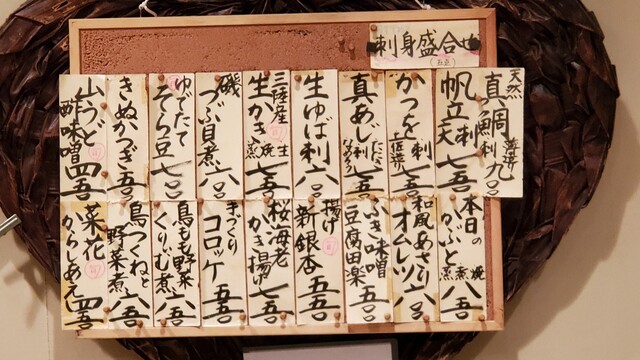 刺身盛合せ
(五点)
天然
真鯛刺 薄造り 九〇
帆立天刺 七五
かつを刺 土佐造り 七五
真あじ刺 たたき なめろう 七五
生ゆば刺 六〇
三陸産
生かき 生 焼 蒸 七五
磯つぶ貝煮 六〇
ゆでたて
そら豆 七〇
きぬかつぎ 五五
山うど酢味噌 四五
本日の
かぶと 焼 煮 蒸 八五
和風あさり
オムレツ 六〇
ふき味噌
豆腐田楽 五〇
揚げ
新銀杏 五五
桜海老
かき揚げ 七五
手づくり
コロッケ 五五
鳥もも野菜
くりーむ煮 六五
鳥つくねと
野菜煮 六五
菜花
からしあえ 四五